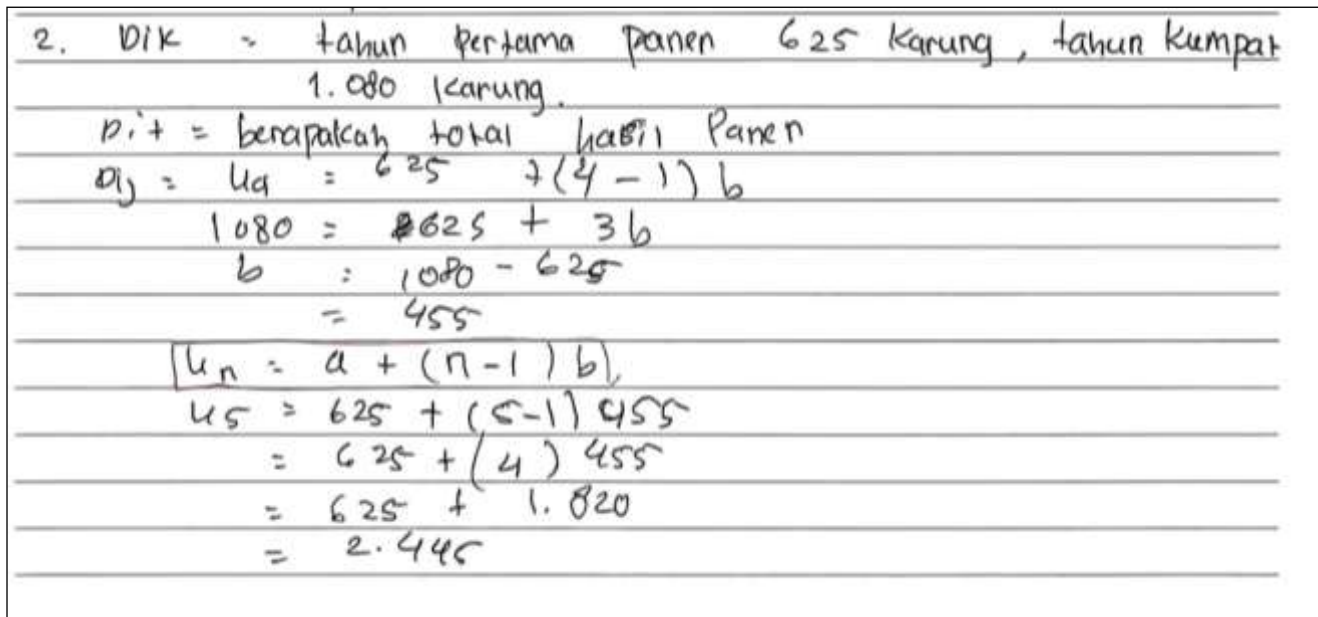 2. Dik = tahun pertama panen 625 karung, tahun kumpat
1.080 karung.
Dit = berapakah total hasil Panen
Dij = U4 = 625 + (4 - 1) b
1080 = 625 + 3b
b = 1080 - 625
= 455
Un = a + (n - 1) b
U5 = 625 + (5-1) 455
= 625 + (4) 455
= 625 + 1.820
= 2.445